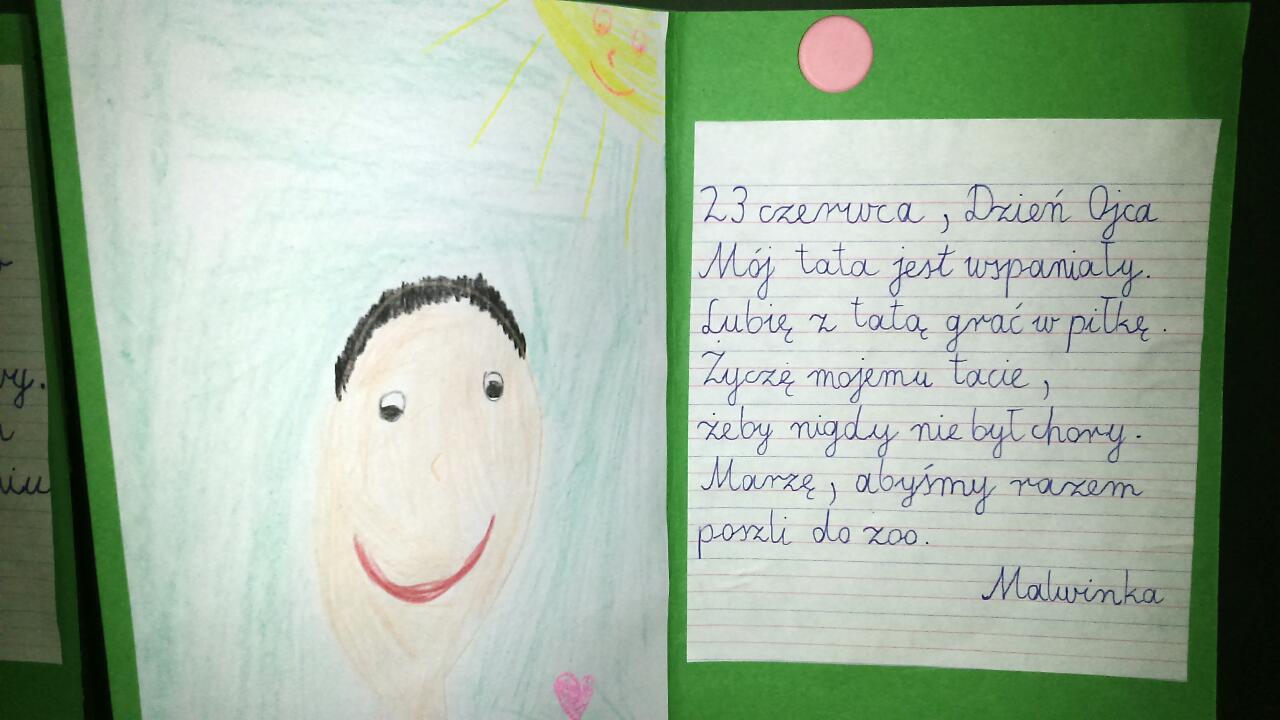 23 czerwca, Dzień Ojca
Mój tata jest wspaniały.
Lubię z tatą grać w piłkę.
Życzę mojemu tacie,
żeby nigdy nie był chory.
Marzę, abyśmy razem
poszli do zoo.
Malwinka